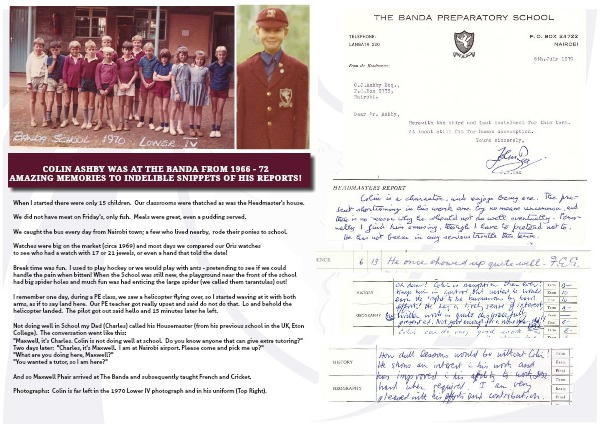 BANDA SCHOOL 1970 LOWER IV
COLIN ASHBY WAS AT THE BANDA FROM 1966 - 72
AMAZING MEMORIES TO INDELIBLE SNIPPETS OF HIS REPORTS!
When I started there were only 15 children. Our classrooms were thatched as was the Headmaster's house.
We did not have meat on Friday's, only fish. Meals were great, even a pudding served.
We caught the bus every day from Nairobi town; a few who lived nearby, rode their ponies to school.
Watches were big on the market (circa 1969) and most days we compared our Oris watches
to see who had a watch with 17 or 21 jewels, or even a hand that told the date!
Break time was fun. I used to play hockey or we would play with ants - pretending to see if we could
handle the pain when bitten! When the School was still new, the playground near the front of the school
had big spider holes and much fun was had enticing the large spider (we called them tarantulas) out!
I remember one day, during a PE class, we saw a helicopter flying over, so I started waving at it with both
arms, as if to say land here. Our PE teacher got really upset and said do not do that. Lo and behold the
helicopter landed. The pilot got out said hello and 15 minutes later he left.
Not doing well in School my Dad (Charles) called his Housemaster (from his previous school in the UK, Eton
College). The conversation went like this:
"Maxwell, it's Charles. Colin is not doing well at school. Do you know anyone that can give extra tutoring?"
Two days later: "Charles, it's Maxwell. I am at Nairobi airport. Please come and pick me up?"
"What are you doing here, Maxwell?"
"You wanted a tutor, so I am here?"
And so Maxwell Phair arrived at The Banda and subsequently taught French and Cricket.
Photographs: Colin is far left in the 1970 Lower IV photograph and in his uniform (Top Right).
THE BANDA PREPARATORY SCHOOL
TELEPHONE:
LANGATA 220
P.O. BOX 24722
NAIROBI
From the Headmaster:
8th July 1970
C.J.Ashby Esq.,
P.O.Box
Nairobi.
Dear Mr. Ashby,
Herewith the third and last instalment for this term.
At least still fit for human consumption.
Yours sincerely,
HEADMASTERS REPORT
Colin is a character, and enjoys being one. The pre-
sent shortcoming in his work are by no means uncommon, and
there is no reason why he should not do well eventually. Perso-
nally I find him amusing, though I have to pretend not to.
He has not been in any serious trouble this term.
ENCE 6 13 He once showed up quite well.
HISTORY
GEOGRAPHY
HISTORY
GEOGRAPHY
How dull lessons would be without Colin!
He shows an interest in his work and
has improved in his ability to work
hard when required. I am very
pleased with his efforts and contribution.
Term
Exam
Final
Term
Exam
Final